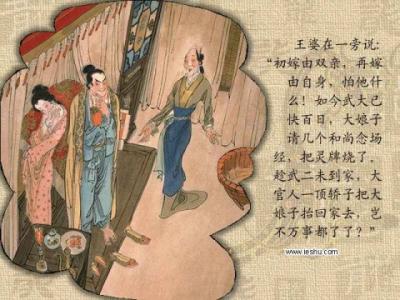 王婆在一旁说:
“初嫁由双亲，再嫁
由自身，怕他什
么！如今武大已
快百日，大娘子
请几个和尚念场
经，把灵牌烧了，
趁武二未到家，大
官人一顶轿子把大
娘子抬回家去，岂
不万事都了了？”
www.ieshu.com